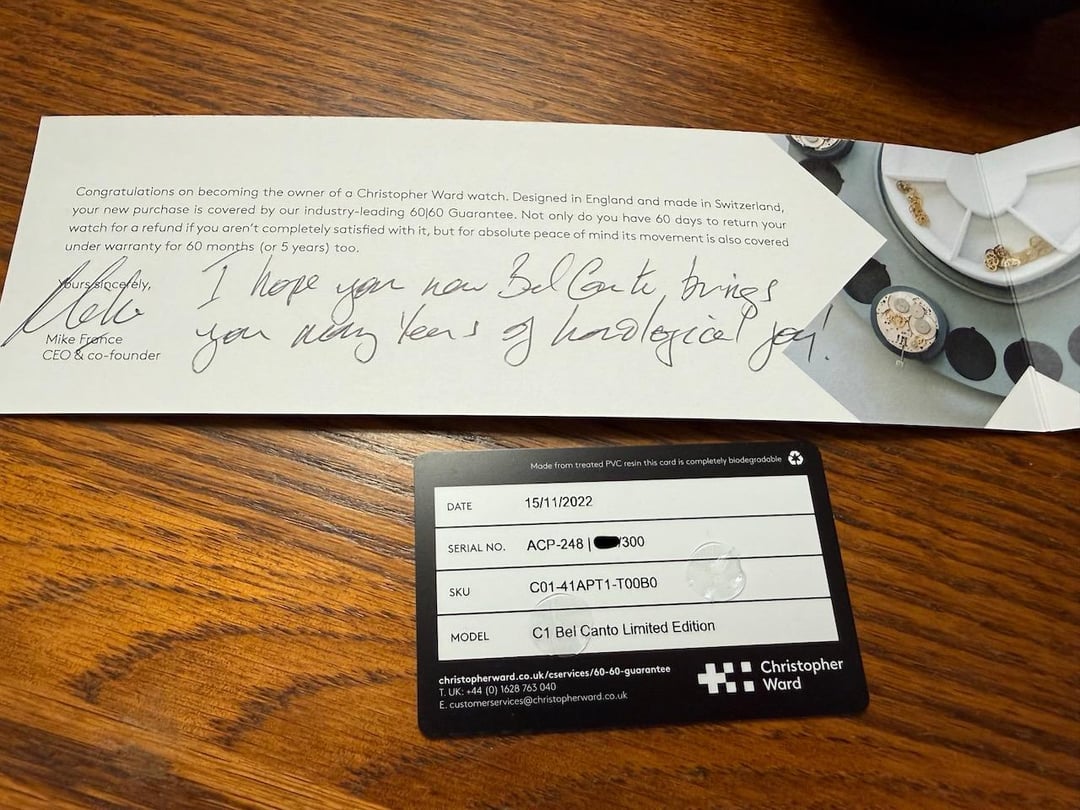 Congratulations on becoming the owner of a Christopher Ward watch. Designed in England and made in Switzerland,
your new purchase is covered by our industry-leading 60|60 Guarantee. Not only do you have 60 days to return your
watch for a refund if you aren't completely satisfied with it, but for absolute peace of mind its movement is also covered
under warranty for 60 months (or 5 years) too.
Yours sincerely,
Mike France
CEO & co-founder
I hope your new Bel Canto, brings
you many years of horological joy!
Made from treated PVC resin this card is completely biodegradable
DATE 15/11/2022
SERIAL NO. ACP-248 | /300
SKU C01-41APT1-T00B0
MODEL C1 Bel Canto Limited Edition
christopherward.co.uk/cservices/60-60-guarantee
T. UK: +44 (0) 1628 763 040
E. customerservices@christopherward.co.uk
Christopher
Ward